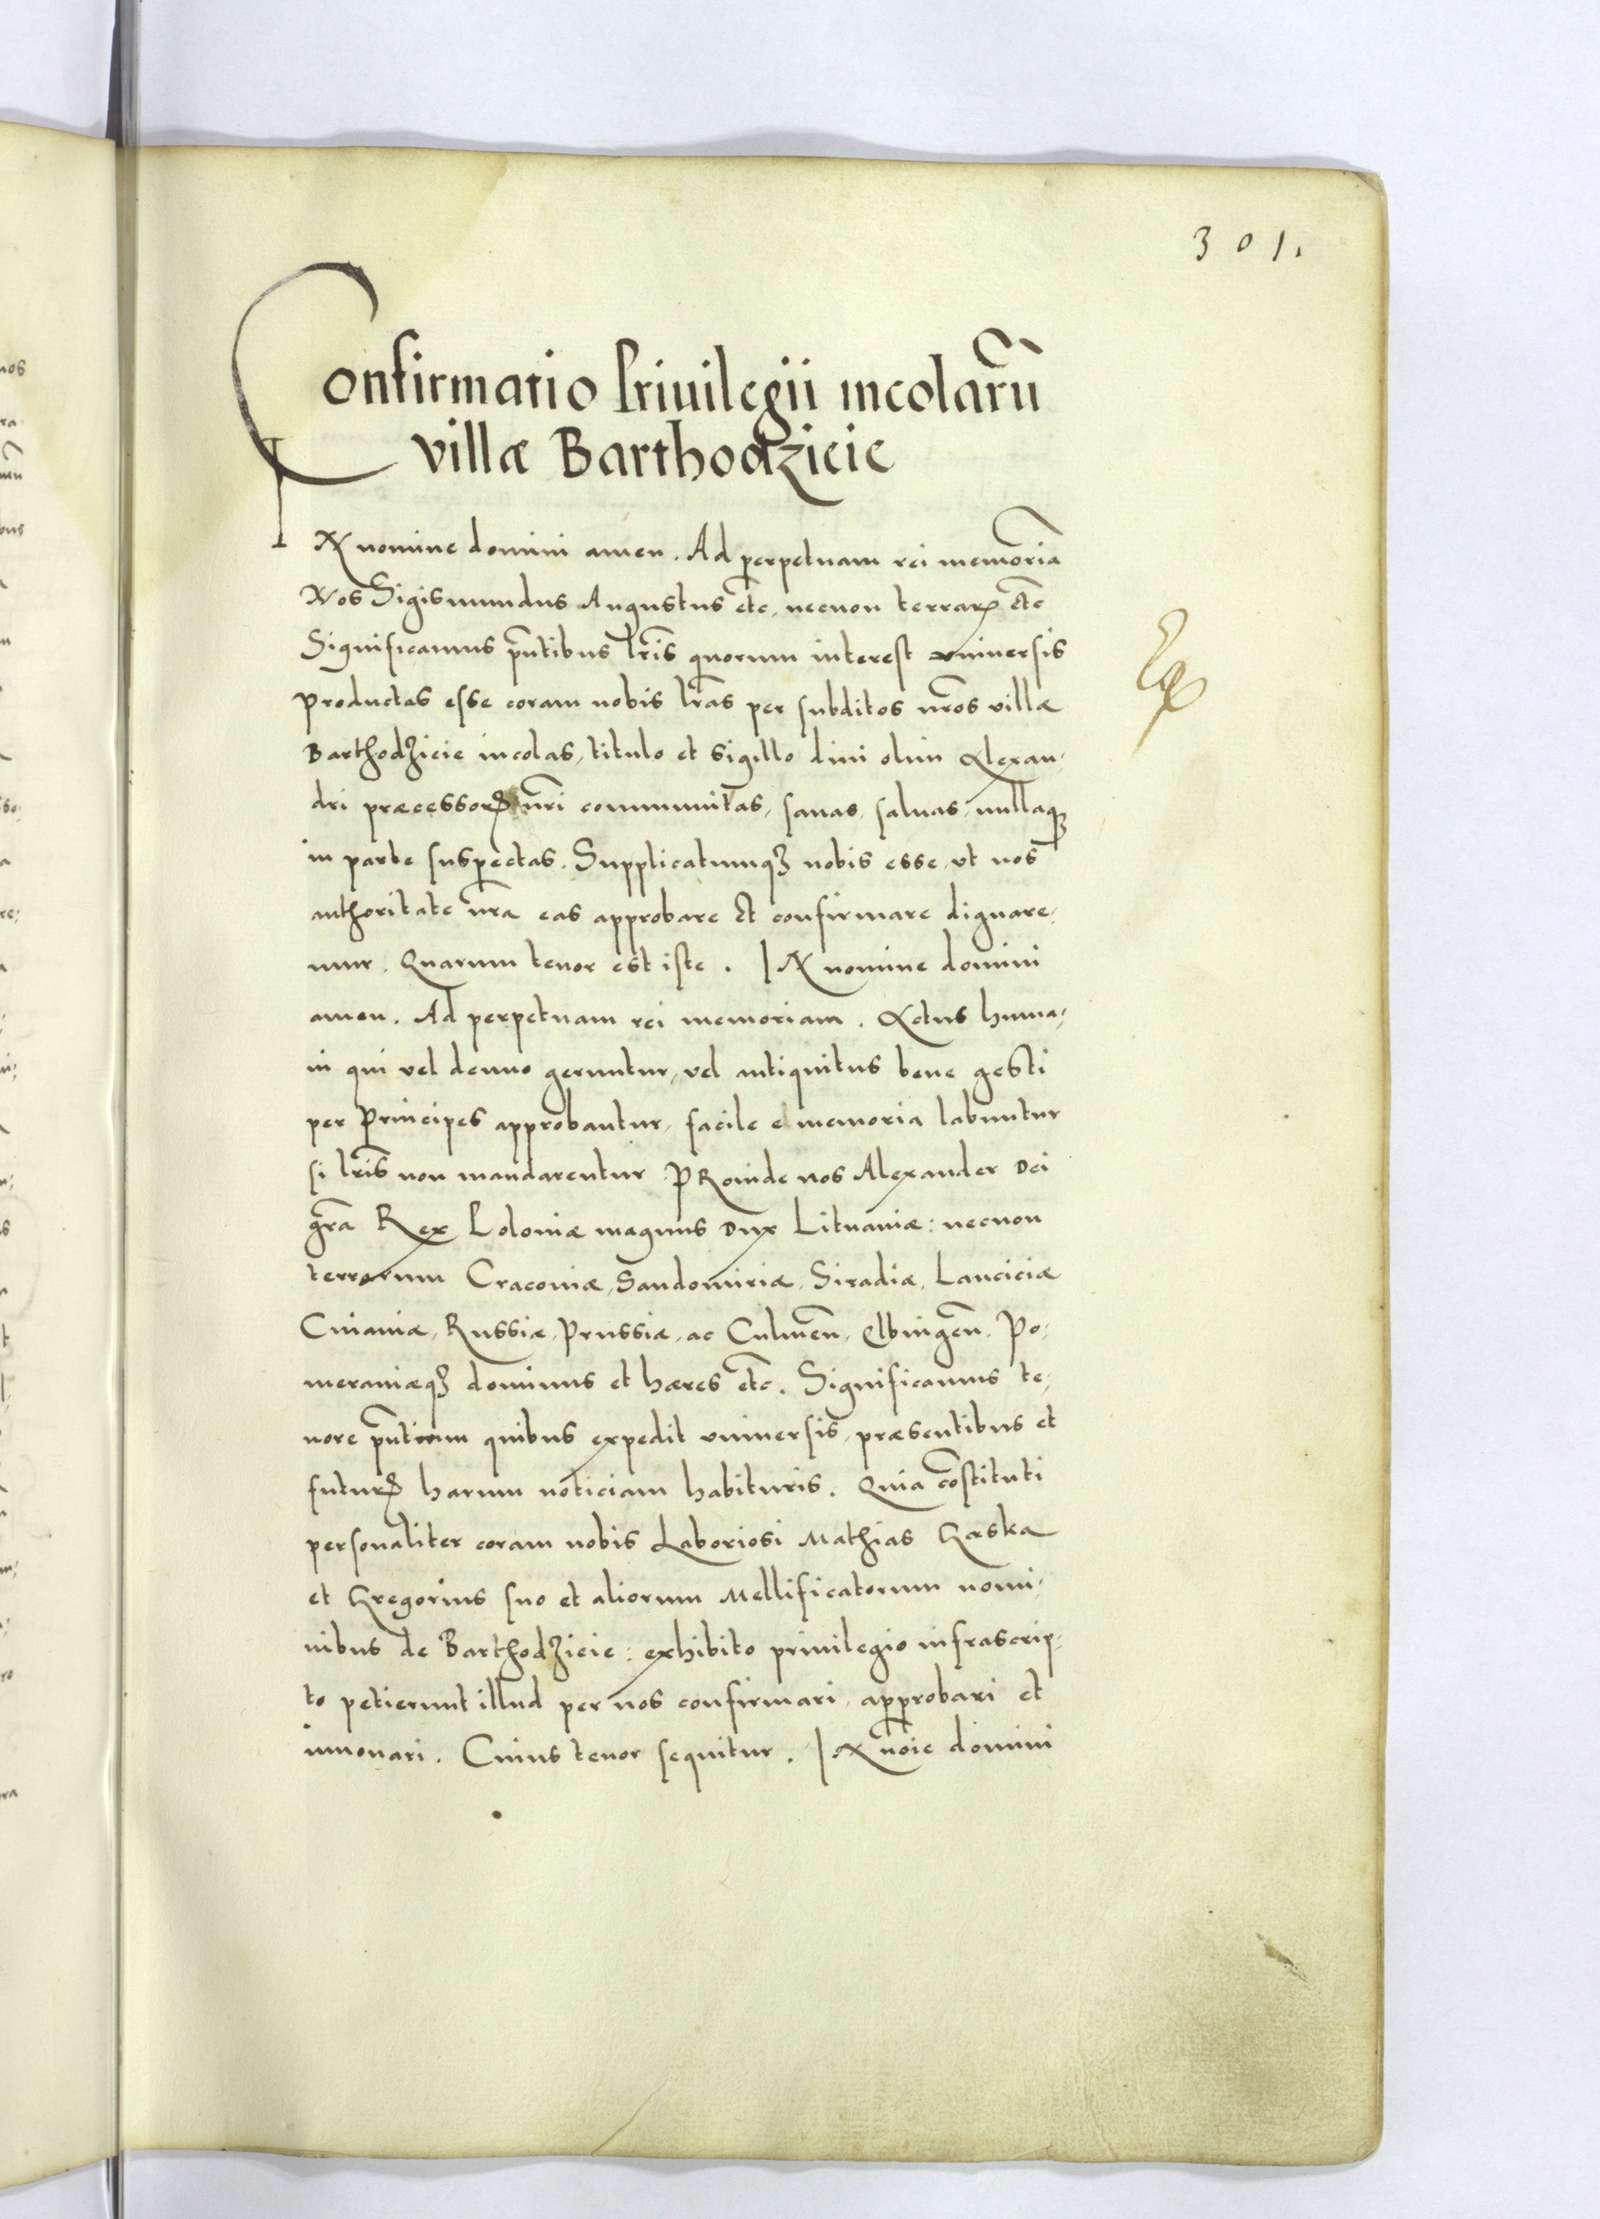 301.
Confirmatio Priuilegii incolarũ
villæ Barthodzieie
IN nomine domini amen. Ad perpetuam rei memoriã
Nos Sigismundus Augustus etc̃, necnon terrarꝝ etc̃
Significamus p̃ntibus lr̃is quorum interest vniuersis
productas esse coram nobis lr̃as per subditos nr̃os villæ
Barthodzieie incolas, titulo et sigillo diui olim Alexan,
dri præcessorꝭ nr̃i communitas, sanas, saluas, nullaqꝫ
in parte suspectas. Supplicatumqꝫ nobis esse, vt nos
authoritate nr̃a eas approbare et confirmare dignare,
mur. Quarum tenor est iste. IN nomine domini
amen. Ad perpetuam rei memoriam. Actus huma,
ni qui vel denuo geruntur, vel antiquitus bene gesti
per Principes approbantur, facile e memoria labuntur
si lr̃is non mandarentur PRoinde nos Alexander Dei
gr̃a Rex Poloniæ magnus Dux Lituaniæ: necnon
terrarum Cracouiæ, Sandomiriæ, Siradiæ, Lanciciæ
Cuiauiæ, Russiæ, Prussiæ, ac Culmeñ, Elbingeñ, Po,
meraniæqꝫ dominus et hæres etc̃. Significamus te,
nore p̃ntium quibus expedit vniuersis, præsentibus et
futurꝭ harum noticiam habituris. Quia cõstituti
personaliter coram nobis Laboriosi Mathias Gæska
et Gregorius suo et aliorum Mellificatorum nomi,
nibus de Barthodzieie: exhibito priuilegio infrascrip,
to petierunt illud per nos confirmari, approbari et
innouari. Cuius tenor sequitur. IN nõie domini